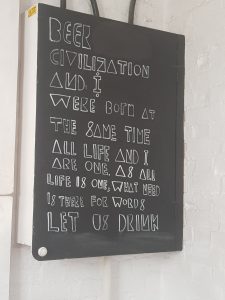 BEER
CIVILIZATION
AND I
WERE BORN AT
THE SAME TIME
ALL LIFE AND I
ARE ONE. AS ALL
LIFE IS ONE, WHAT NEED
IS THERE FOR WORDS
LET US DRINK